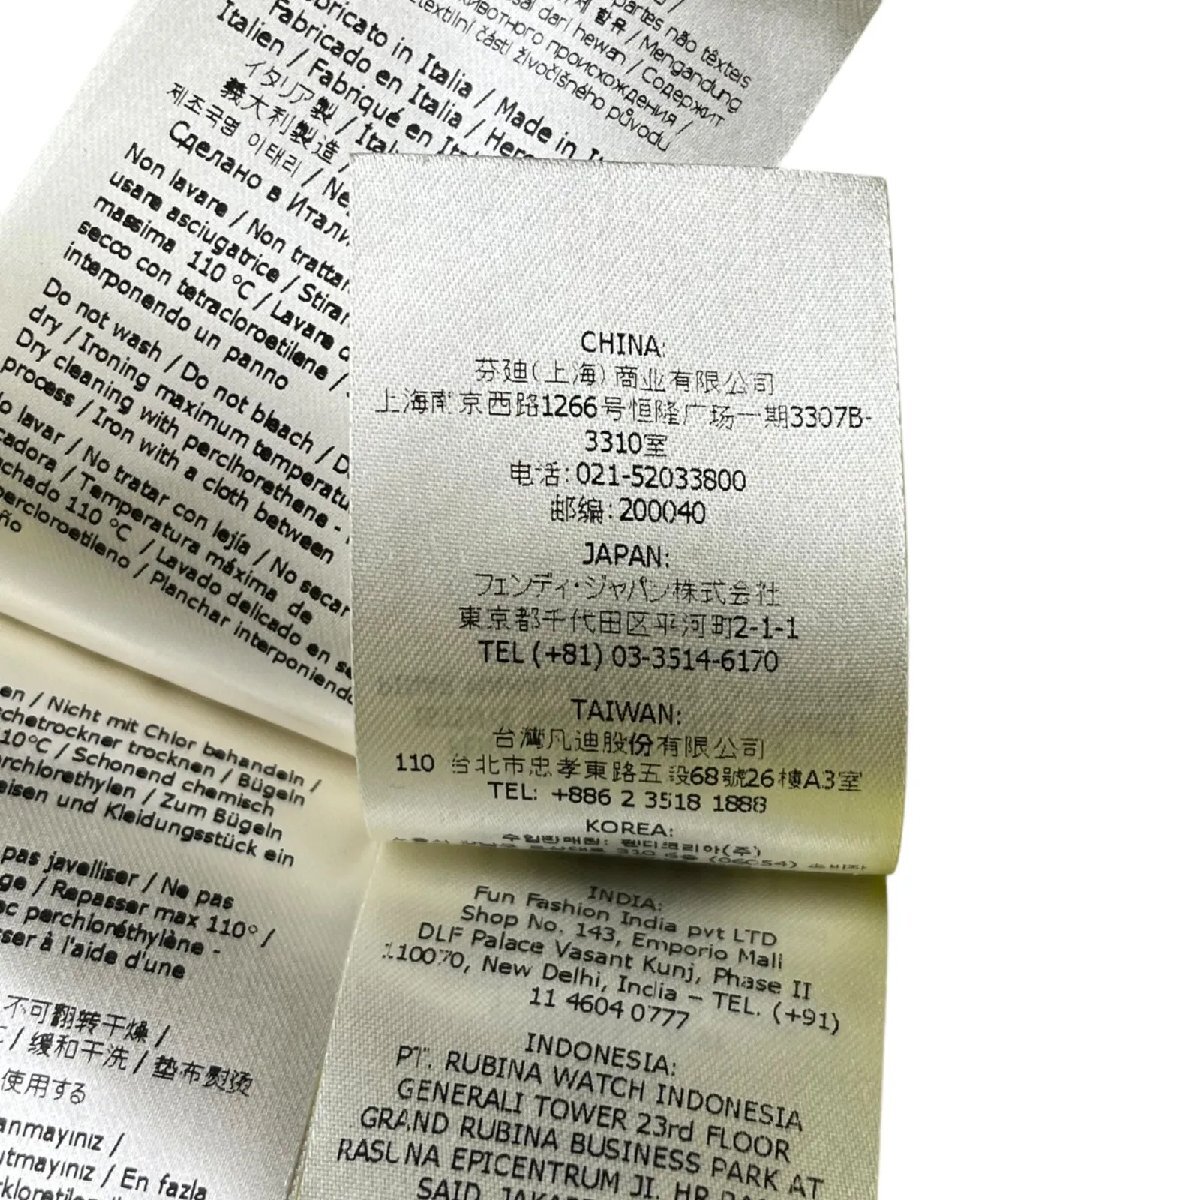 partes não têxteis
sal dari hewan / Mengandung
животного происхождения / Содержит
textilní části živočišného původu
Fabbricato in Italia / Made in
Fabricado en Italia /
Italien / Fabriqué en
イタリア製 /
義大利製造 /
제조국명 이태리 /
Сделано в
Non lavare / Non trattar
usare asciugatrice / Stirar
massima 110 °C / Lavare
secco con tetracloroetilene /
interponendo un panno
Do not wash / Do not bleach /
dry / Ironing maximum temperatu
Dry cleaning with perclhorethene -
process / Iron with a cloth between
lavar / No tratar con lejía / No secar
cadora / Temperatura máxima de
chado 110 °C / Lavado delicado en se
percloroetileno / Planchar interponiendo
ño
CHINA:
芬廸(上海)商业有限公司
上海南京西路1266号恒隆广场一期3307B-
3310室
电话: 021-52033800
邮编: 200040
JAPAN:
フェンディ・ジャパン株式会社
東京都千代田区平河町2-1-1
TEL (+81) 03-3514-6170
TAIWAN:
台灣凡迪股份有限公司
110 台北市忠孝東路五段68號26樓A3室
TEL: +886 2 3518 1888
KOREA:
수입판매원: 펜디코리아(주)
en / Nicht mit Chlor behandeln /
schetrockner trocknen / Bügeln
10°C / Schonend chemisch
erchlorethylen / Zum Bügeln
eisen und Kleidungsstück ein
pas javelliser / Ne pas
ge / Repasser max 110° /
ec perchloréthylène -
ser à l'aide d'une
不可翻转干燥 /
/ 缓和干洗 / 垫布熨烫
使用する
anmayınız /
utmayınız / En fazla
INDIA:
Fun Fashion India pvt LTD
Shop No. 143, Emporio Mall
DLF Palace Vasant Kunj, Phase II
110070, New Delhi, India – TEL. (+91)
11 4604 0777
INDONESIA:
PT. RUBINA WATCH INDONESIA
GENERALI TOWER 23rd FLOOR
GRAND RUBINA BUSINESS PARK AT
RASUNA EPICENTRUM JI. HR
SAID, JAKAR